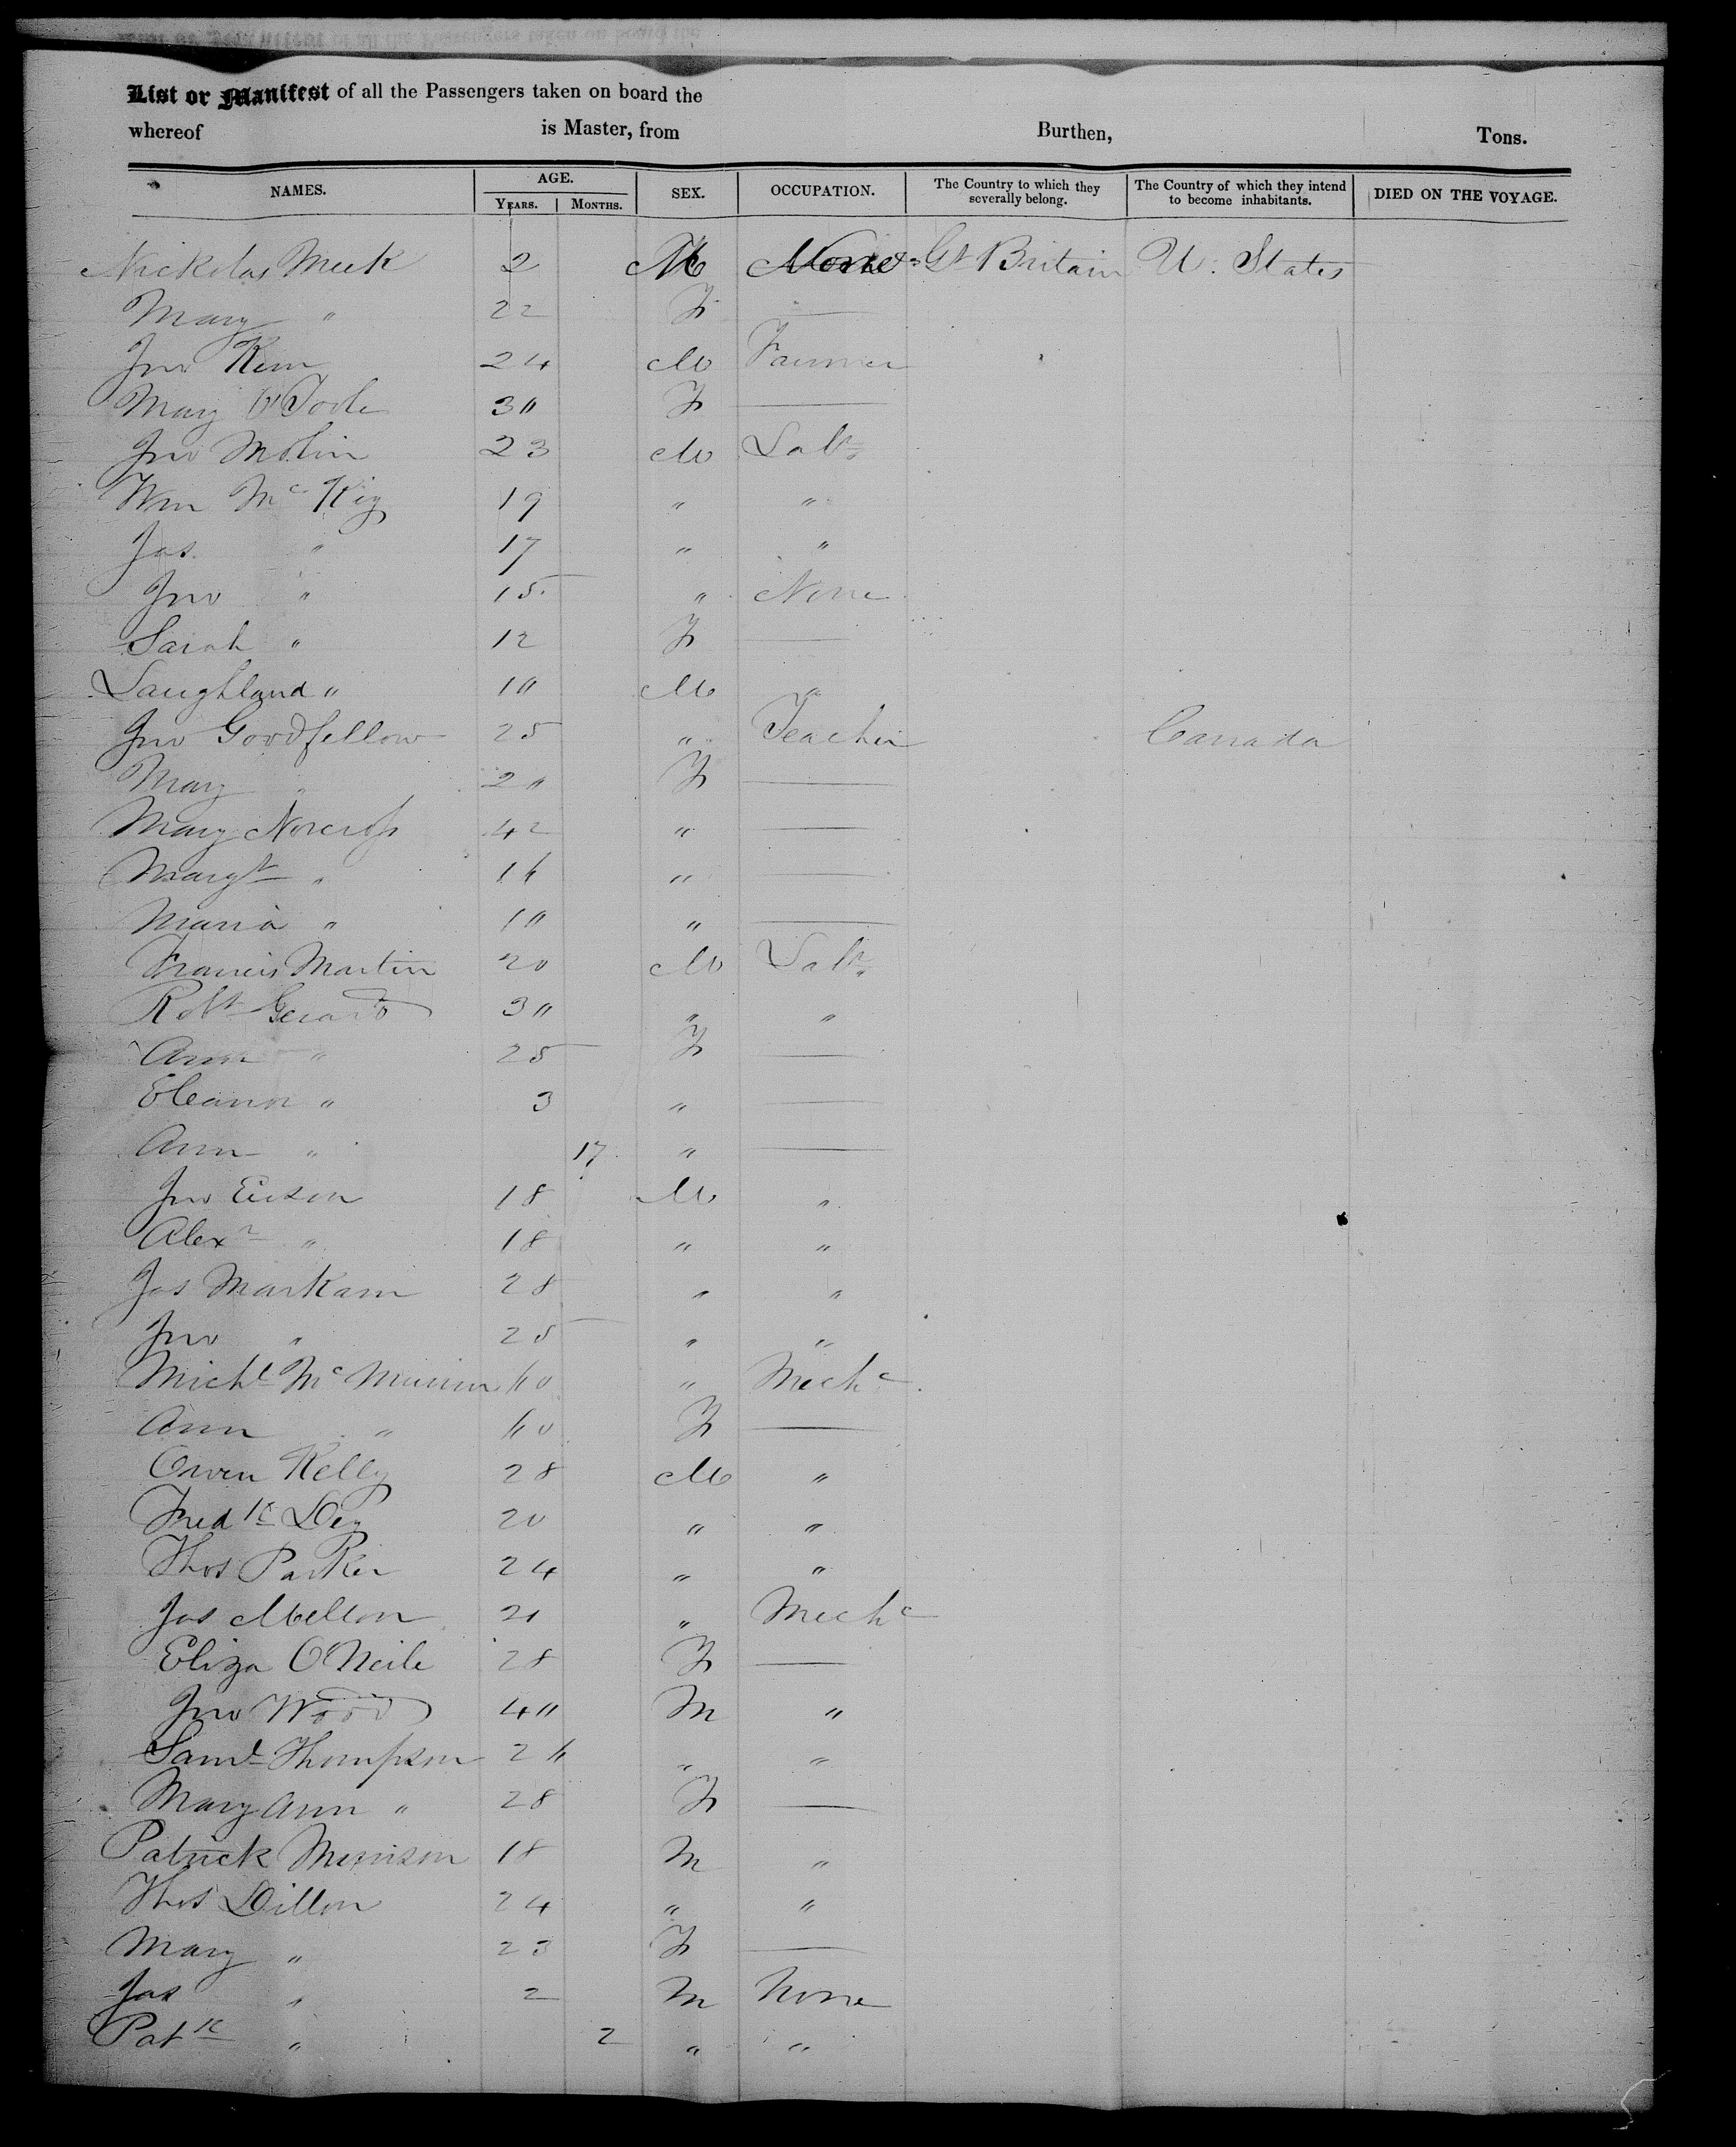 List or Manifest of all the Passengers taken on board the
whereof is Master, from Burthen, Tons.
NAMES. AGE. SEX. OCCUPATION. The Country to which they severally belong. The Country of which they intend to become inhabitants. DIED ON THE VOYAGE.
YEARS. MONTHS.
Nickolas Meek 2 M None Gt Britain U. States
Mary " 22 F —
Jno 24 M Farmer
Mary O'Toole 30 F —
Jno 23 M Labr
Wm Mc 19 " "
Jas " 17 " "
Jno " 15 " None
Sarah " 12 F —
Laughland " 10 M "
Jno Goodfellow 25 " Teacher Canada
Mary " 20 F —
Mary Norcross 42 " —
Margt " 16 " —
Maria " 10 " —
Francis Martin 20 M Labr
Robt Gerard 30 " "
Ann " 25 F —
Eleanor " 3 " —
Ann " 17 " —
Jno 18 M "
Alexr " 18 " "
Jas Markam 28 " "
Jno " 25 " "
Michl Mc 60 " Mechc
Ann " 60 F —
Owen Kelly 28 M "
Fredk Dey 20 " "
Thos Parker 24 " "
Jas Mellon 21 " Mechc
Eliza O'Neile 28 F —
Jno Wood 40 M "
Saml Thompson 26 " "
Mary Ann " 28 F —
Patrick 18 M "
Thos Dillon 24 " "
Mary " 23 F —
Jas " 2 M None
Patk " 2 " "